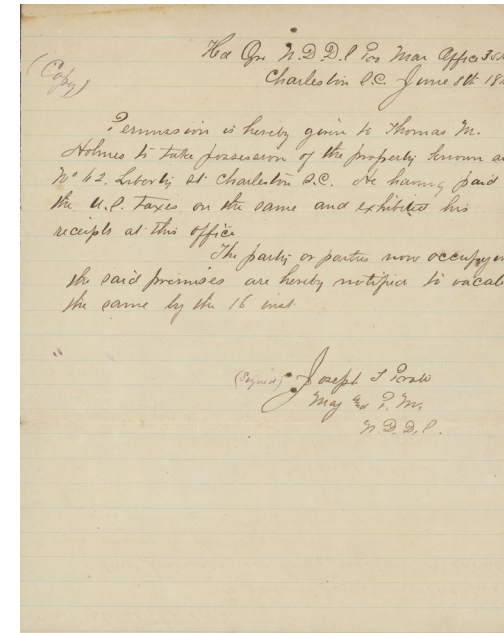 Hd Qrs N.D.D.C Pro Mar Office
(Copy)
Charleston S.C. June 8th 18
Permission is hereby given to Thomas M.
Holmes to take possession of the property known
No 62. Liberty St Charleston S.C. He having paid
the U.S. Taxes on the same and exhibited his
receipts at this office
The party or parties now
the said premises are hereby notified to
the same by the 16 inst
(Signed) Joseph T
Maj & P. M.
N.D.D.C.